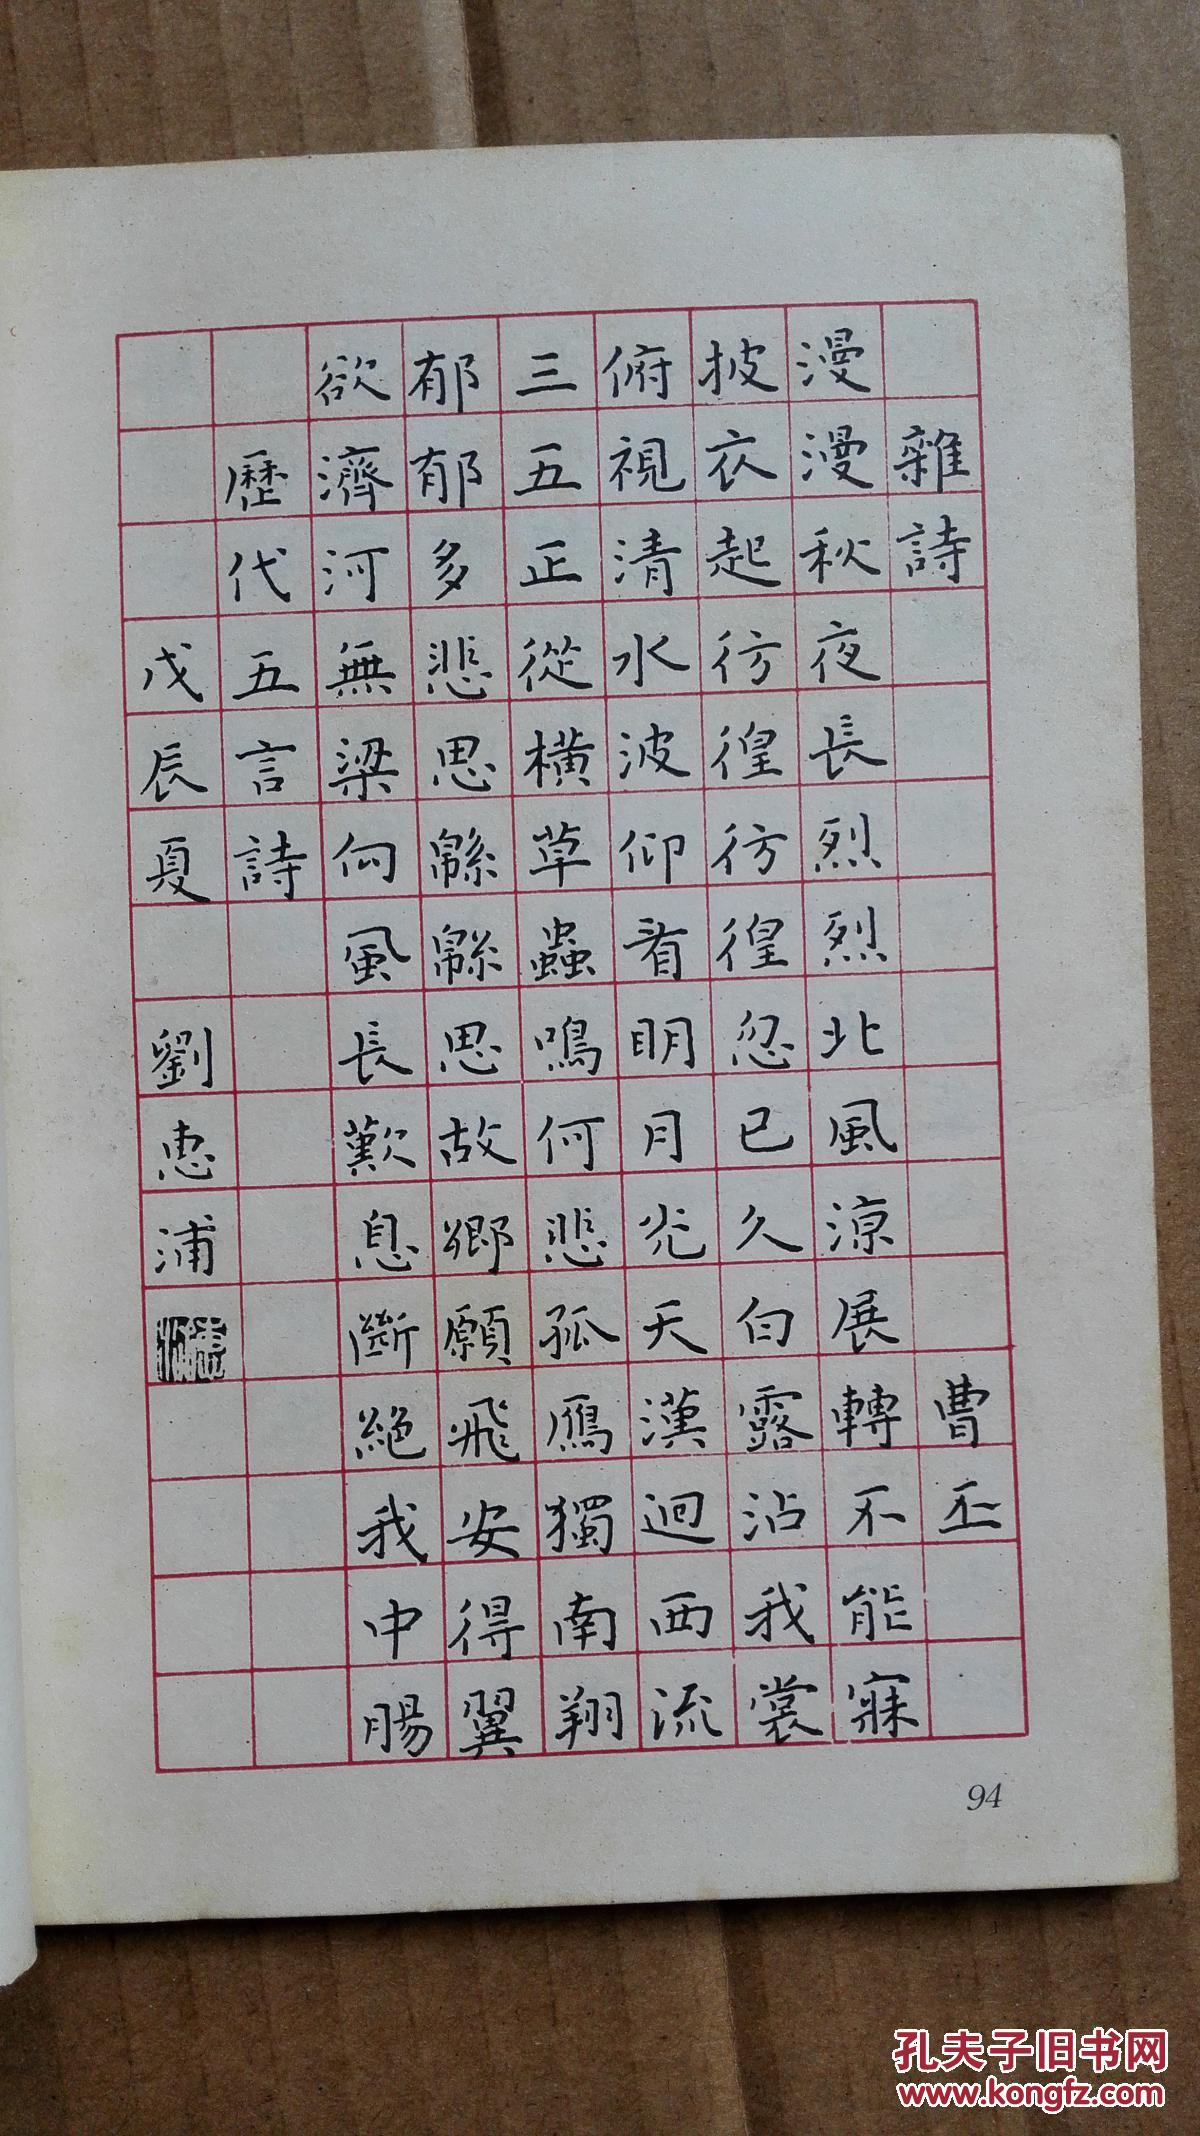 雜詩　曹丕
漫漫秋夜長烈烈北風涼展轉不能寐
披衣起彷徨彷徨忽已久白露沾我裳
俯視清水波仰看明月光天漢迴西流
三五正從橫草蟲鳴何悲孤鴈獨南翔
郁郁多悲思緜緜思故鄉願飛安得翼
欲濟河無梁向風長歎息斷絕我中腸
歷代五言詩
戊辰夏　劉惠浦
94
孔夫子旧书网
www.kongfz.com